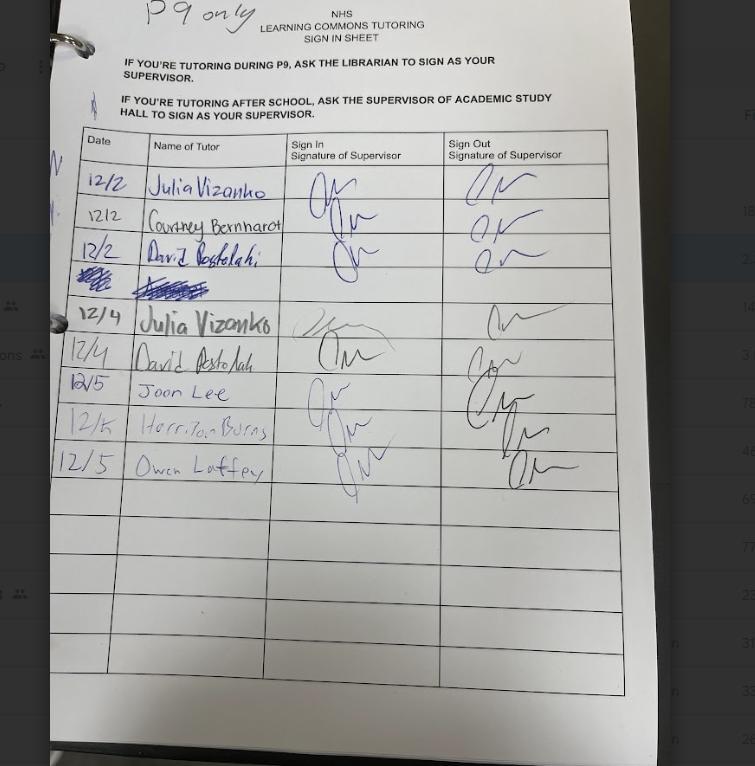 P9 only
NHS
LEARNING COMMONS TUTORING
SIGN IN SHEET
IF YOU'RE TUTORING DURING P9, ASK THE LIBRARIAN TO SIGN AS YOUR
SUPERVISOR.
IF YOU'RE TUTORING AFTER SCHOOL, ASK THE SUPERVISOR OF ACADEMIC STUDY
HALL TO SIGN AS YOUR SUPERVISOR.
Date Name of Tutor Sign In Signature of Supervisor Sign Out Signature of Supervisor
12/2 Julia Vizanko
12/2 Courtney Bernhardt
12/2 David Postolahi
12/4 Julia Vizanko
12/4 David
12/5 Joon Lee
Burns
12/5 Owen Laffey